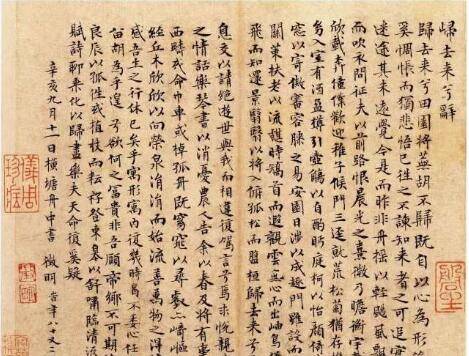 歸去来兮辭
歸去来兮田園將蕪胡不歸既自以心為形役
奚惆悵而獨悲悟已往之不諫知来者之可追
迷途其未遠覺今是而昨非舟揺以輕颺風飄
而吹衣問征夫以前路恨晨光之熹微乃瞻衡宇載
欣載奔僮僕歡迎稚子候門三逕就荒松菊猶存
幼入室有酒盈樽引壺觴以自酌眄庭柯以怡顔倚
窗以寄傲審容膝之易安園日涉以成趣門雖設而
關策扶老以流憩時矯首而遐觀雲無心而出岫鳥
飛而知還景翳翳以將入撫孤松而盤桓歸去来兮
息交以絶遊世與我而相違復駕言兮焉求悦親
之情話樂琴書以消憂農人告余以春及將有事
西疇或命巾車或棹孤舟既窈窕以尋壑亦崎嶇
經丘木欣欣以向榮泉涓涓而始流善萬物之得
感吾生之行休已矣乎寓形寓内復幾時曷不委心任
留胡為乎遑遑兮欲何之富貴非吾願帝鄉不可期
良辰以孤往或植杖而耘耔登東皋以舒嘯臨清流
賦詩聊乘化以歸盡樂夫天命復奚疑
辛亥九月十一日橫塘舟中書 徵明 時年八十又二